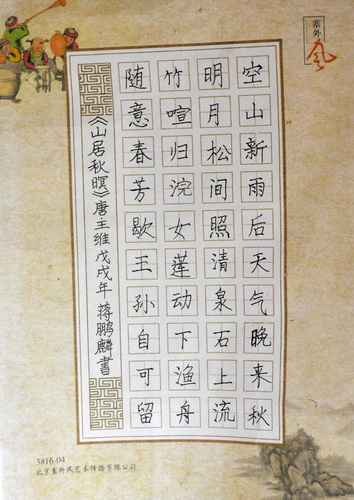 塞外
风
空山新雨后天气晚来秋
明月松间照清泉石上流
竹喧归浣女莲动下渔舟
随意春芳歇王孙自可留
《山居秋暝》唐王维 戊戌年 蒋鹏麟書
3816-04
北京塞外风艺术传播有限公司